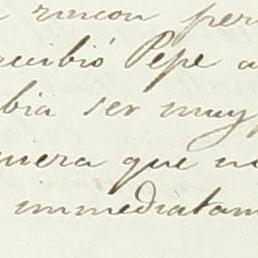 rincon per
recibió Pepe a
bia ser muy
nera que no
inmediatam